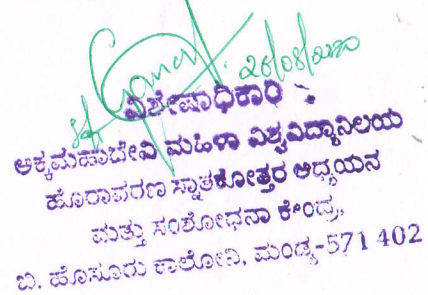 28/08/2020
ವಿಶೇಷಾಧಿಕಾರಿ
ಅಕ್ಕಮಹಾದೇವಿ ಮಹಿಳಾ ವಿಶ್ವವಿದ್ಯಾನಿಲಯ
ಹೊರಾವರಣ ಸ್ನಾತಕೋತ್ತರ ಅಧ್ಯಯನ
ಮತ್ತು ಸಂಶೋಧನಾ ಕೇಂದ್ರ,
ಬಿ. ಹೊಸೂರು ಕಾಲೋನಿ, ಮಂಡ್ಯ-571 402